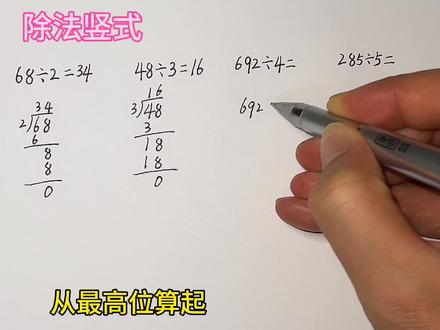 除法竖式
68÷2=34
34
2)68
6
8
8
0
48÷3=16
16
3)48
3
18
18
0
692÷4=
692
285÷5=
从最高位算起